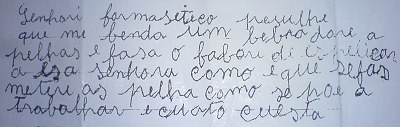 Senhori formasetico pesulhe
que me benda um bebradore a
pelhas e fasa o fabori di ispelicar
a esa senhora como e que se fas
meteri as pelha como se poe a
trabalhar e cuoto cuesta